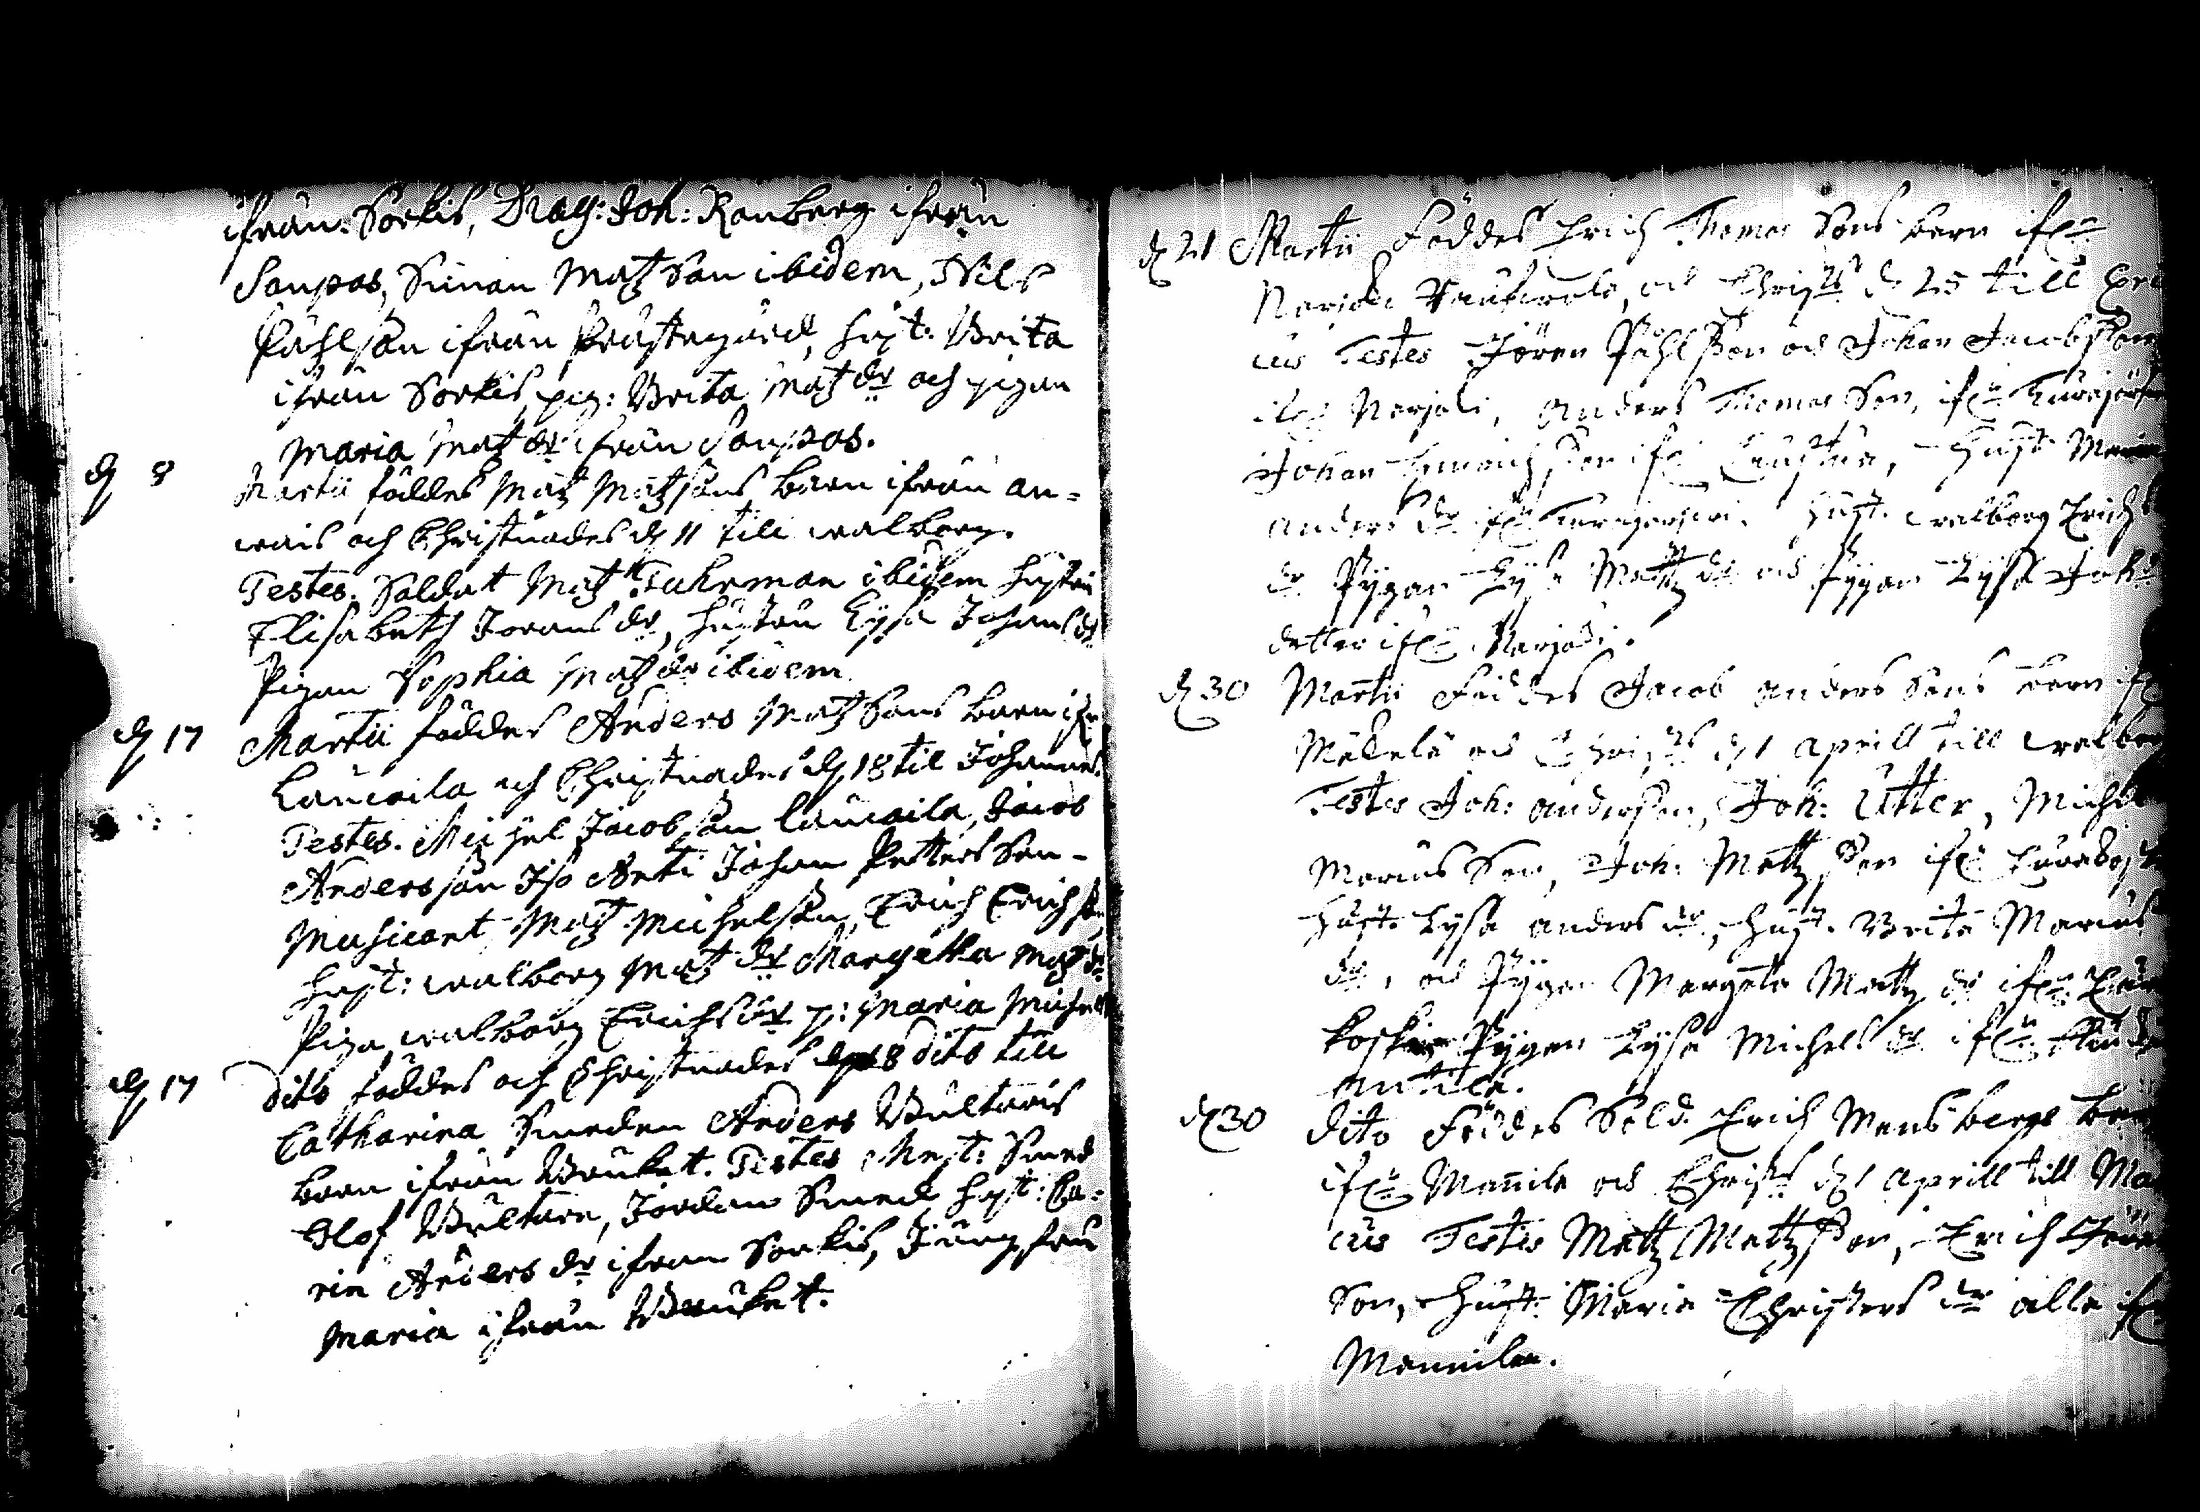 ifrån Sorkis, Drag: Joh: Ranberg ifrån
Saupas, Simon Matz Son ibidem, Nils
Påhlson ifrån Prästegård, hust: Brita
ifrån Sorkis, pig: Brita Matz dr och pigan
Maria Matz dr ifrån Saupas.
d 8 Martii föddes Matz Matzsons barn ifrån an-
wais och Christnades d 11 till walborg.
Testes. Soldat Matz Fuhrman ibidem hustru
Elisabeth Jorans dr, hustru Lysa Johans dr
Pigan Sophia Matz dr ibidem
d 17 Martii föddes Anders Matz Sons barn ifr
Laucaila och Christnades d 18 til Johannes.
Testes. Michel Jacobson Laucaila, Jacob
Andersson Iso Anti Johan Petters Son -
Musicant Matz Michelson, Erich Erichs
hust: walborg Matz dr Margetha Matz dr
Piga walborg Erichs dr p: Maria Michels
d 17 dito föddes och Christnades d 18 dito till
Catharina Smeden Anders Bultaris
barn ifrån Bruket. Testes Mest: Smed
Olof Bultare, Jordan Smed hust: Ca-
rin Anders dr ifrån Sorkis, Jungfru
Maria ifrån Bruket.
d 21 Martii Föddes Erich Thomas Sons barn ifrn
Narjoki, och Christs d 25 till
cus Testes Jören Påhlson och Johan Jacobson
ifrn Narjoki, Anders Thomas Son, ifrn
Johan Henrich Son ifrn, Hust
Anders dr ifrn. Hust. walborg Erichs
dr Pygan Lysa Mattz dr och Pygan Lysa Joh
dotter ifrn Narjoki.
d 30 Martii Föddes Jacob Anders Sons barn ifrn
Mäkelä och Christs d 1 Aprill till walborg
Testes Joh: Anderson, Joh: Utter, Michel
Marcus Son, Joh: Mattz Son ifrn
Hust. Lysa Anders dr, Hust. Brita Marcus
dr, och Pygan Margeta Mattz dr ifrn
koski Pygan Lysa Michels dr ifrn
Antila.
d 30 dito Föddes Sold. Erich Mansbergs barn
ifrn Mannila och Christs d 1 Aprill till Mar
cus Testes Mattz Mattz Son, Erich Jören
Son, Hust: Maria Christers dr alla ifrn
Mannila.